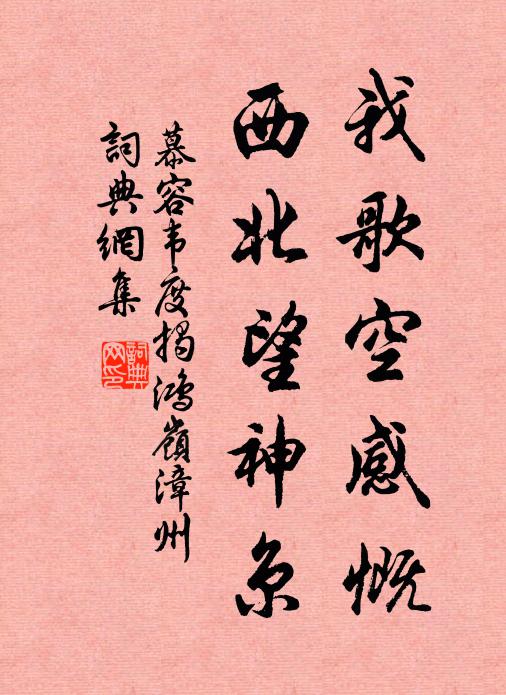 我歌空感慨
西北望神京
慕容韦度揭鸿岭漳州
詞典網集
詞典网印